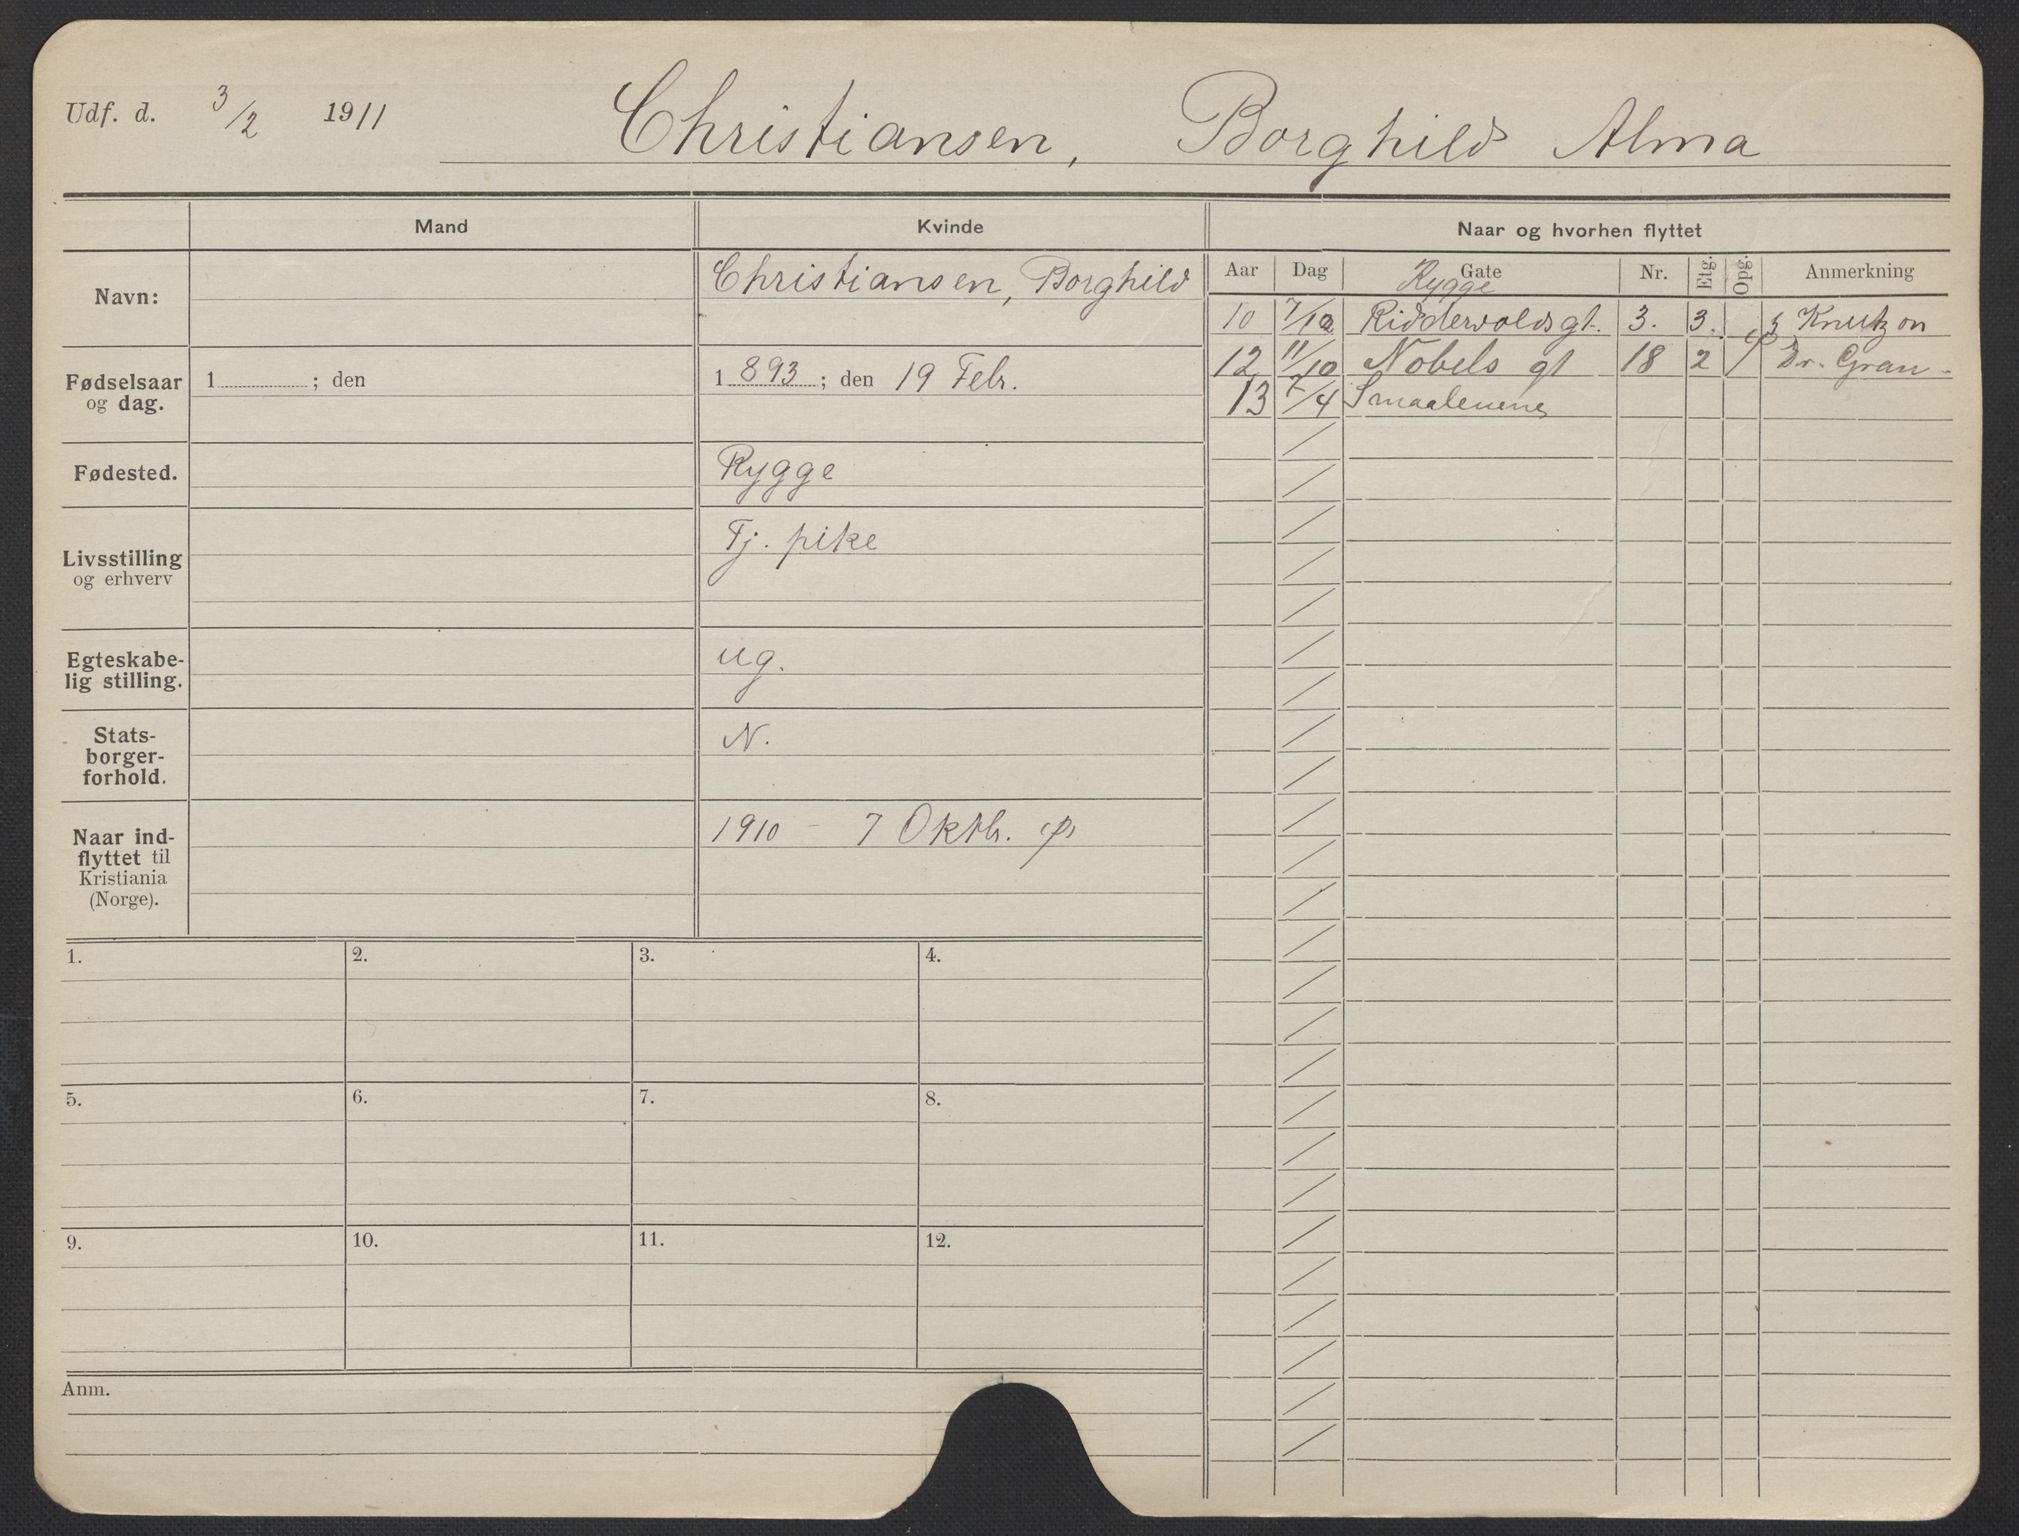 Udf. d. 3/2 1911 Christiansen, Borghild Alma
Mand Kvinde Naar og hvorhen flyttet
Navn: Christiansen, Borghild
Fødselsaar og dag. 1 ; den 1 893 ; den 19 Febr.
Fødested. Rygge
Livsstilling og erhverv Tj. pike
Egteskabe-
lig stilling. ug.
Stats-
borger-
forhold. N.
Naar ind-
flyttet til
Kristiania
(Norge). 1910 - 7 Oktb.
Aar Dag Gate Nr. Etg. Opg. Anmerkning
Rygge
10 7/10 Riddervoldsgt. 3. 3. Knutzon
12 11/10 Nobels gt 18 2 Dr. Gran
13 7/4 Smaalenene
1. 2. 3. 4.
5. 6. 7. 8.
9. 10. 11. 12.
Anm.